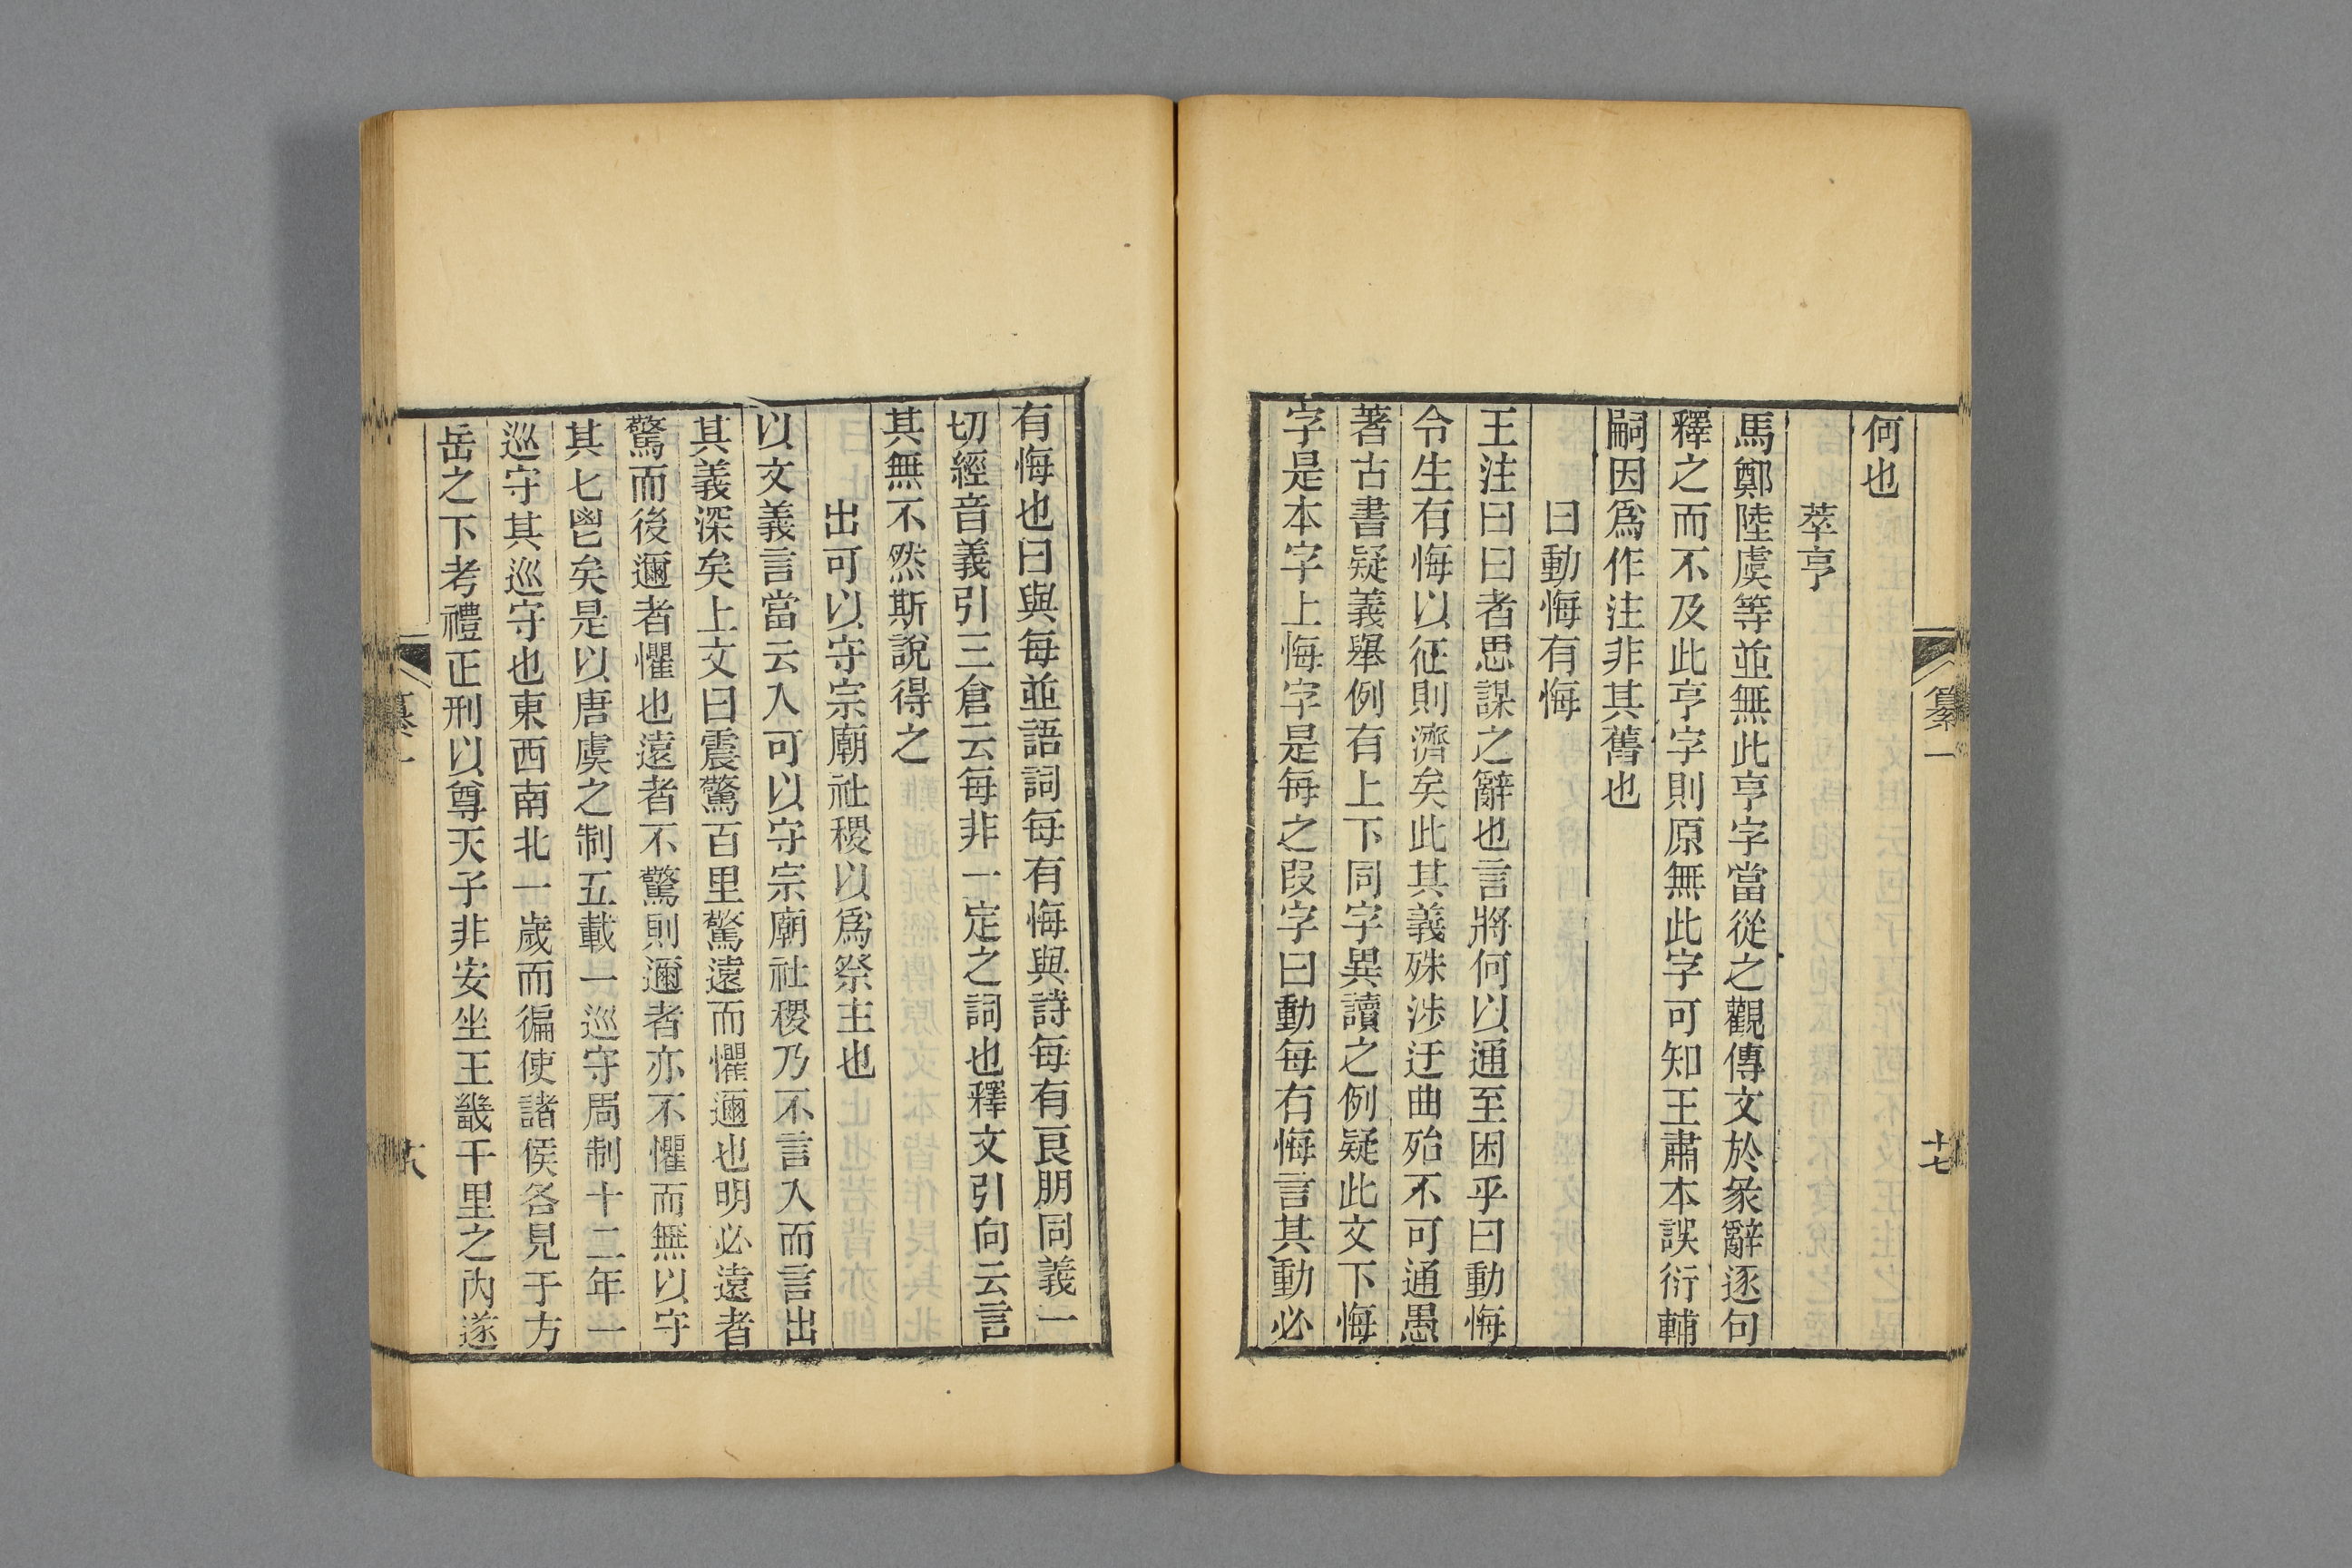 何也
萃亨
馬鄭陸虞等並無此亨字當從之觀傳文於彖辭逐句
釋之而不及此亨字則原無此字可知王肅本誤衍輔
嗣因爲作注非其舊也
曰動悔有悔
王注曰曰者思謀之辭也言將何以通至困乎曰動悔
令生有悔以征則濟矣此其義殊涉迂曲殆不可通愚
著古書疑義舉例有上下同字異讀之例疑此文下悔
字是本字上悔字是每之叚字曰動每有悔言其動必
纂一
十七
有悔也曰與每並語詞每有悔與詩每有良朋同義一
切經音義引三倉云每非一定之詞也釋文引向云言
其無不然斯說得之
出可以守宗廟社稷以爲祭主也
以文義言當云入可以守宗廟社稷乃不言入而言出
其義深矣上文曰震驚百里驚遠而懼邇也明必遠者
驚而後邇者懼也遠者不驚則邇者亦不懼而無以守
其匕鬯矣是以唐虞之制五載一巡守周制十二年一
巡守其巡守也東西南北一歲而徧使諸侯各見于方
岳之下考禮正刑以尊天子非安坐王畿千里之內遂
纂一